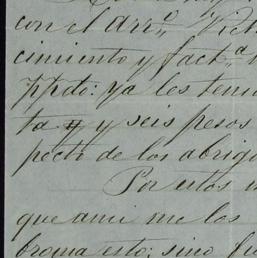 con el arr.º Vict
cimiento y fact.ª
ppdo: ya les tenia
ta y seis pesos
pecto de los abrigo
Por estos
que ami me los
broma esto; sino fu